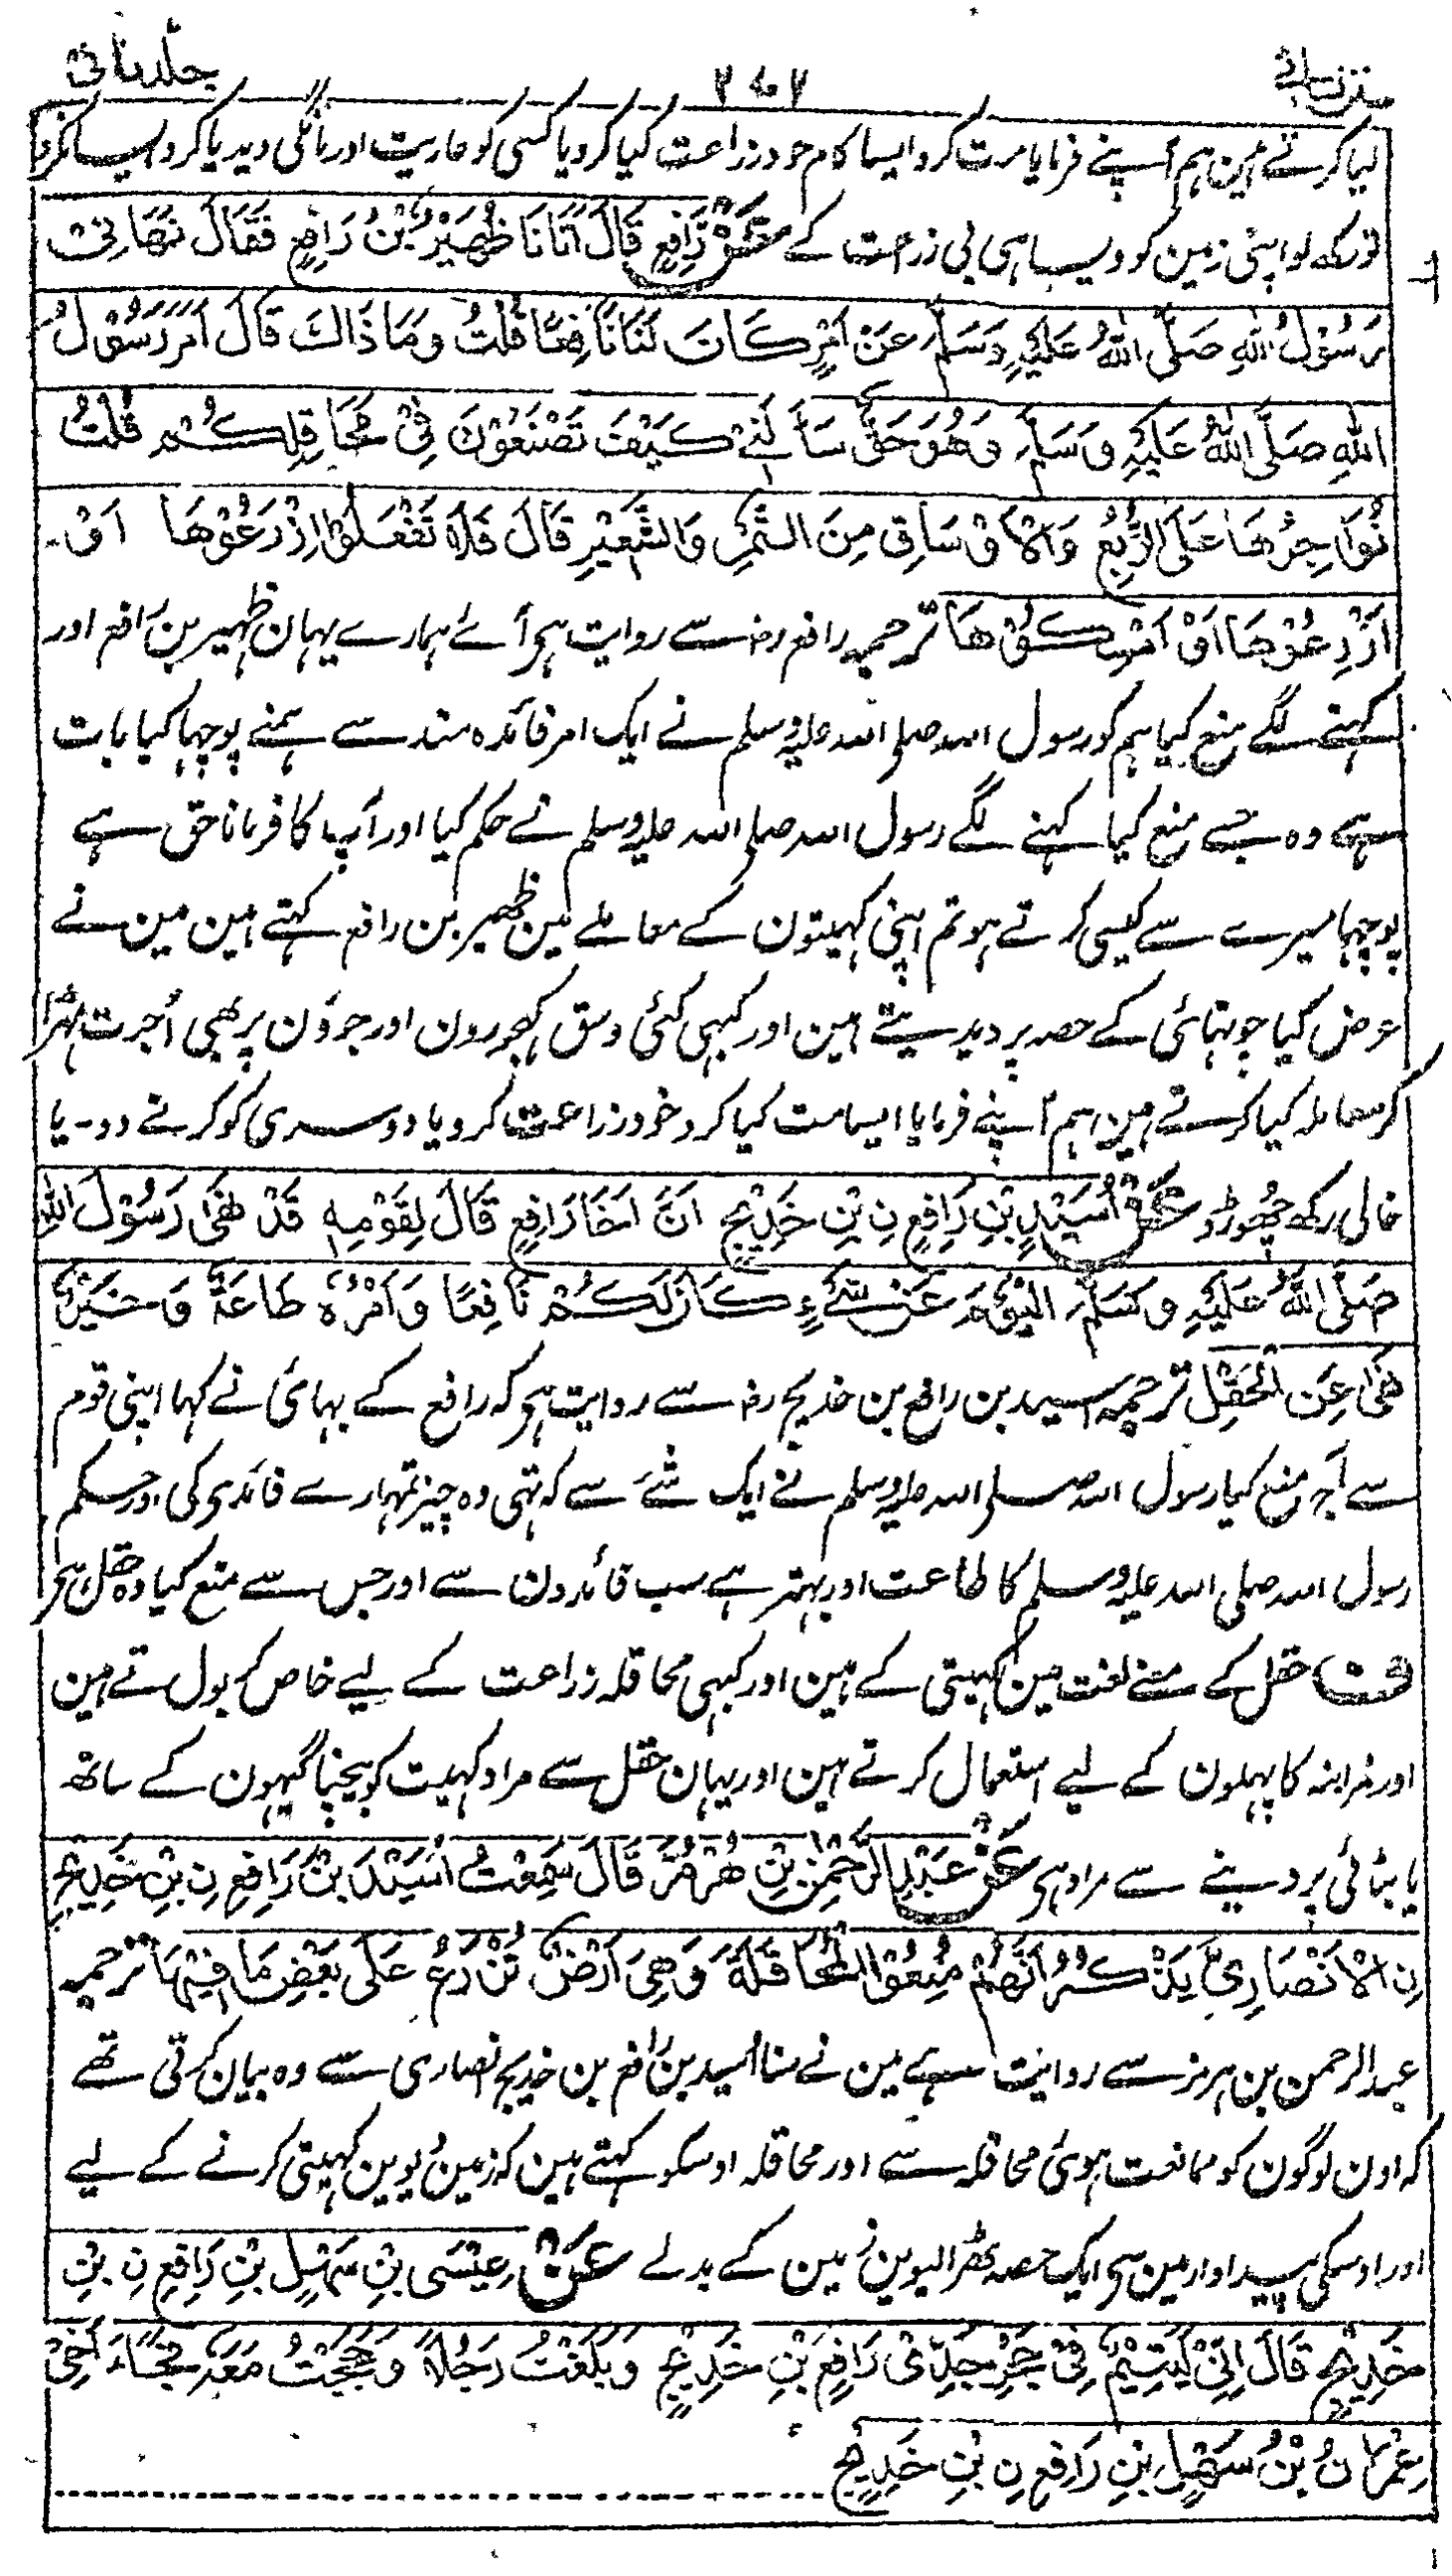 سنن نسائی ۲۰۲ جلد ثانی
لیا کرتے ہین ہم آپنے فرمایا مت کرو ایسا کام خود زراعت کیا کرو یا کسی کو عاریت اور مانگی دیدیا کرو ایسا نکرو
تو رکھ لو اپنی زمین کو ویسیاہی بی زراعت کے عَنْ رَافِعٍ قَالَ اَتَانَا ظُهَيْرُ بْنُ رَافِعٍ فَقَالَ نَهَانِیْ
رَسُوْلُ اللهِ صَلَّی اللهُ عَلَيْهِ وَسَلَّمَ عَنْ اَمْرٍ كَانَ لَنَا نَافِعًا قُلْتُ وَمَا ذَاكَ قَالَ اَمْرُ رَسُوْلِ
اللهِ صَلَّی اللهُ عَلَيْهِ وَسَلَّمَ وَهُوَ حَقٌّ سَأَلَنِیْ كَيْفَ تَصْنَعُوْنَ فِیْ مَحَاقِلِكُمْ قُلْتُ
نُوَاجِرُهَا عَلَی الرُّبُعِ وَالْاَوْسَاقِ مِنَ التَّمْرِ وَالشَّعِيْرِ قَالَ فَلَا تَفْعَلُوْا اِزْرَعُوْهَا اَوْ
اَزْرِعُوْهَا اَوْ اَمْسِكُوْهَا ترجمہ رافع رضہ سے روایت ہی آئے ہمارے یہان ظہیر بن رافع اور
کہنے لگے منع کیا ہم کو رسول اللہ صلی اللہ علیہ وسلم نے ایک امر فائدہ مند سے ہمنے پوچہا کیا بات
ہے وہ جسے منع کیا کہنے لگے رسول اللہ صلی اللہ علیہ وسلم نے حکم کیا اور آپ کا فرمانا حق ہے
پوچہا میرے سے کیسی کرتے ہو تم اپنی کہیتون کے معاملے مین ظہیر بن رافع کہتے ہین مین نے
عرض کیا چوتہائی کے حصہ پر دیدیتے ہین اور کبہی کئی وسق کہجورون اور جوؤن پر بھی اُجرت ٹہرا
کر معاملہ کیا کرتے ہین ہم آپنے فرمایا ایسا مت کیا کرو خود زراعت کرو یا دوسری کو کرنے دو۔ یا
خالی رکھ چھوڑو عَنْ اُسَيْدِ بْنِ رَافِعِ نِ بْنِ خَدِيْجٍ اَنَّ اَخَا رَافِعٍ قَالَ لِقَوْمِهٖ قَدْ نَهَی رَسُوْلُ اللهِ
صَلَّی اللهُ عَلَيْهِ وَسَلَّمَ الْيَوْمَ عَنْ شَیْءٍ كَانَ لَكُمْ نَافِعًا وَاَمْرُهٗ طَاعَةٌ وَخَيْرٌ
نَهٰی عَنِ الْحَقْلِ ترجمہ اسید بن رافع بن خدیج رضہ سے روایت ہی کہ رافع کے بہائی نے کہا اپنی قوم
سے آج منع کیا رسول اللہ صلی اللہ علیہ وسلم نے ایک شئے سے کہ تہی وہ چیز تمہارے فائدی کی اور حکم
رسول اللہ صلی اللہ علیہ وسلم کا طاعت اور بہتر ہے سب فائدون سے اور جس سے منع کیا وہ حقل ہی
ف حقل کے معنے لغت مین کہیتی کے ہین اور کبہی محاقلہ زراعت کے لیے خاص کر بولتے ہین
اور مزابنہ کا پہلون کے لیے استعمال کرتے ہین اور یہان حقل سے مراد کہیت کو بیچنا گیہون کے ساتھ
یا بٹائی پر دینے سے مراد ہی عَنْ عَبْدِ الرَّحْمٰنِ بْنِ هُرْمُزَ قَالَ سَمِعْتُ اُسَيْدَ بْنَ رَافِعِ نِ بْنِ خَدِيْجٍ
نِ الْاَنْصَارِیَّ يَذْكُرُ اَنَّهُمْ مُنِعُوْا الْمُحَاقَلَةَ وَهِیَ اَرْضٌ تُزْرَعُ عَلٰی بَعْضِ مَا فِيْهَا ترجمہ
عبدالرحمن بن ہرمز سے روایت ہے مین نے سنا اُسید بن رافع بن خدیج انصاری سے وہ بیان کرتی تھے
کہ اون لوگون کو ممانعت ہوئی محاقلہ سے اور محاقلہ اوسکو کہتے ہین کہ زمین دیوین کہیتی کرنے کے لیے
اور اوسکی پیداوار مین سی ایک حصہ ٹھرالیوین زمین کے بدلے عَنْ عِيْسَی بْنِ سَهْلِ بْنِ رَافِعِ نِ بْنِ
خَدِيْجٍ قَالَ اِنِّیْ لَيَتِيْمٌ فِیْ حَجْرِ جَدِّیْ رَافِعِ بْنِ خَدِيْجٍ وَبَلَغْتُ رَجُلًا وَحَجَجْتُ مَعَهٗ فَجَاءَ اَخِیْ
عِمْرَانُ بْنُ سَهْلِ بْنِ رَافِعِ نِ بْنِ خَدِيْجٍ